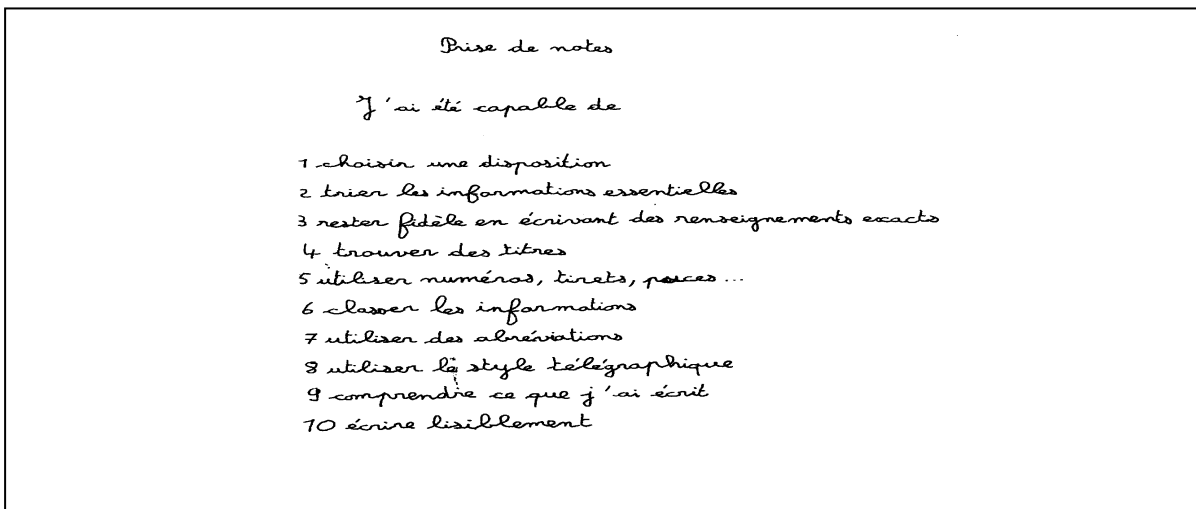 Prise de notes
J'ai été capable de
1 choisir une disposition
2 trier les informations essentielles
3 rester fidèle en écrivant des renseignements exacts
4 trouver des titres
5 utiliser numéros, tirets, puces...
6 classer les informations
7 utiliser des abréviations
8 utiliser le style télégraphique
9 comprendre ce que j'ai écrit
10 écrire lisiblement